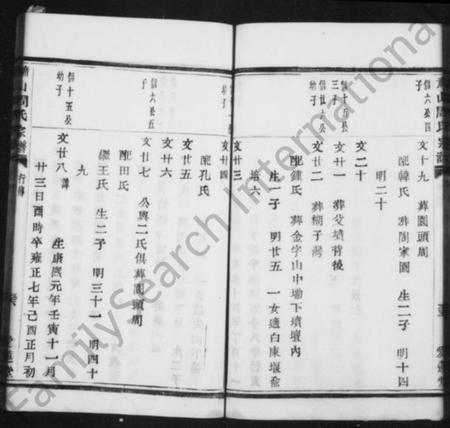 文十九 葬園頭周
配韓氏 葬周家園 生二子 明十四
明二十
文二十
信六公
三子
文廿一 葬父墳背後
文廿二 葬楜子灣
配鍾氏 葬金字山中塲下墳壇內
生一子 明廿五 一女適白康堰
文廿三
文廿四
配孔氏
信六公五
子
文廿五
文廿六
文廿七 公與二氏俱葬園頭周
配田氏
繼王氏 生二子 明三十一 明四十
九
信十五公
幼子
文廿八 諱 生康熙元年壬寅十一月
廿三日酉時卒雍正七年己酉正月初
山周氏宗譜
行傳
愛蓮堂
FamilySearch International